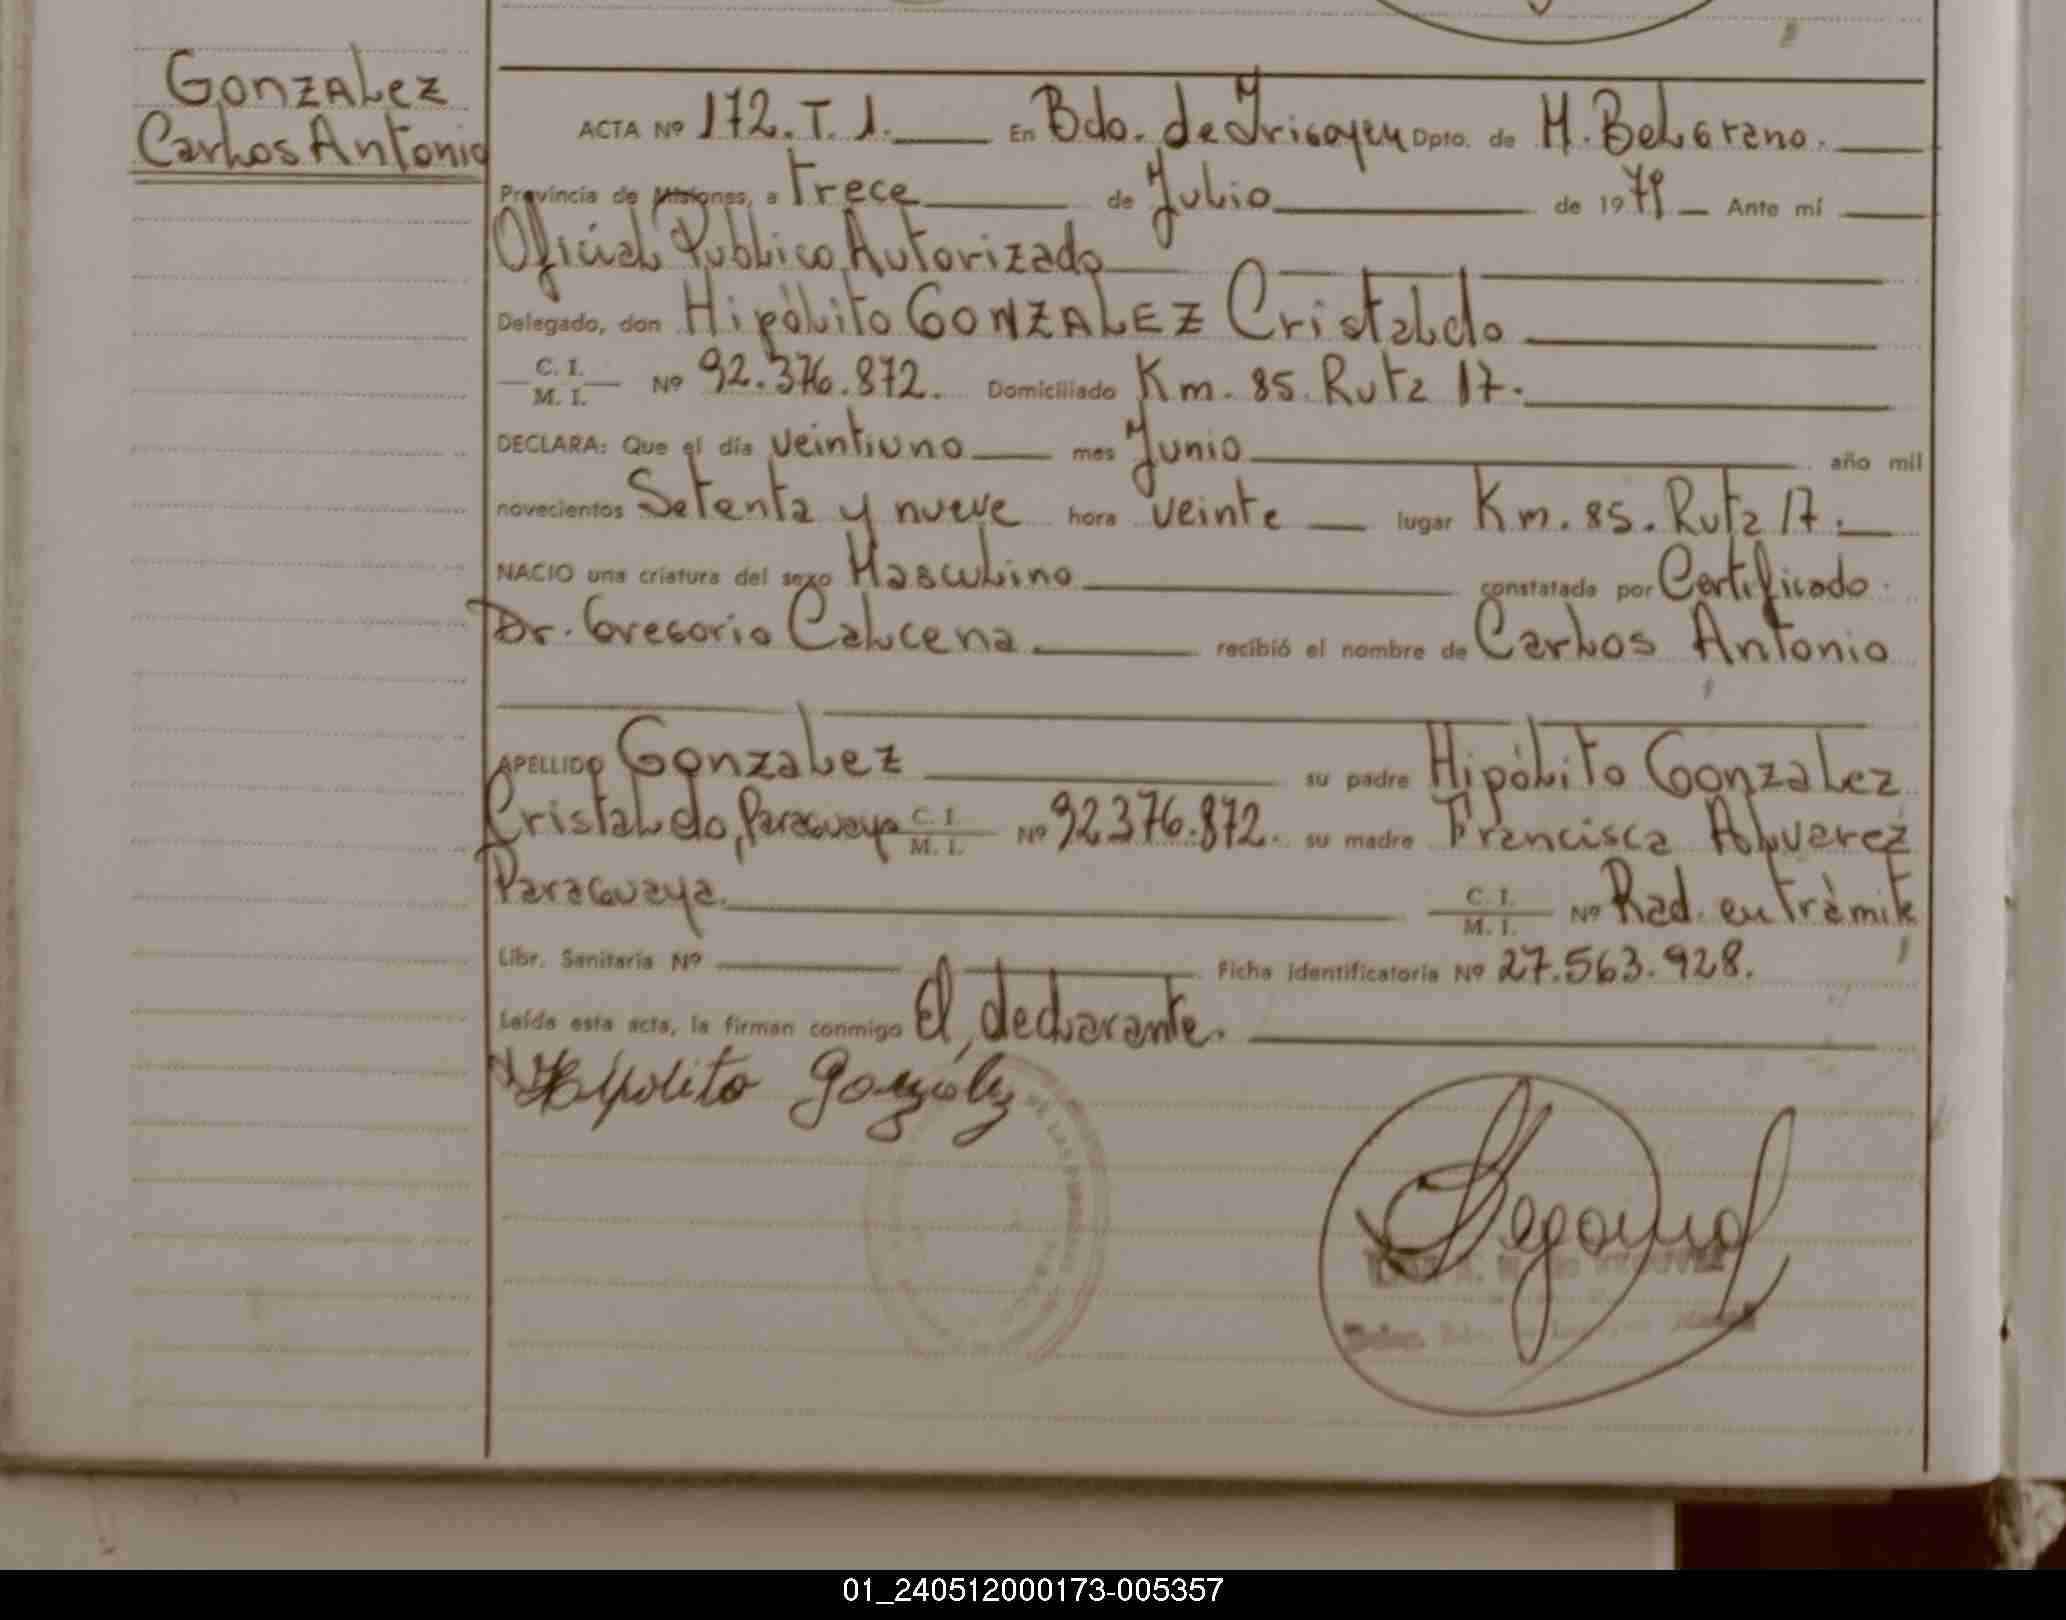 Gonzalez
Carlos Antonio
ACTA Nº 172. T. 1. En Bdo. de Irigoyen Dpto. de M. Belgrano.
Provincia de Misiones, a Trece de Julio de 1979 Ante mí
Oficial Público Autorizado
Delegado, don Hipólito GONZALEZ Cristaldo
C. I.
M. I. Nº 92.376.872. Domiciliado Km. 85. Ruta 17.
DECLARA: Que el día veintiuno mes Junio año mil
novecientos Setenta y nueve hora veinte lugar Km. 85. Ruta 17.
NACIO una criatura del sexo Masculino constatada por Certificado
Dr. Gregorio Calucena recibió el nombre de Carlos Antonio
APELLIDO Gonzalez su padre Hipólito Gonzalez
Cristaldo, Paraguayo C. I. M. I. Nº 92376.872. su madre Francisca Alvarez
Paraguaya. C. I. M. I. Nº Rad. en trámite
Libr. Sanitaria Nº Ficha identificatoria Nº 27.563.928.
Leída esta acta, la firman conmigo El, declarante.
Hipolito Gonzalez
01_240512000173-005357